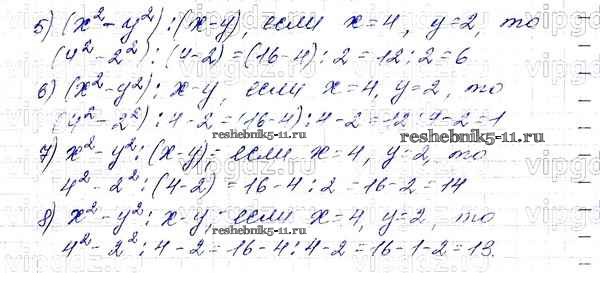 5) (x²-y²):(x-y), если x=4, y=2, то
(4²-2²):(4-2)=(16-4):2=12:2=6
6) (x²-y²):x-y, если x=4, y=2, то
(4²-2²):4-2=(16-4):4-2=12:4-2=1
reshebnik5-11.ru
reshebnik5-11.ru
7) x²-y²:(x-y), если x=4, y=2, то
4²-2²:(4-2)=16-4:2=16-2=14
8) x²-y²:x-y, если x=4, y=2, то
reshebnik5-11.ru
4²-2²:4-2=16-4:4-2=16-1-2=13.